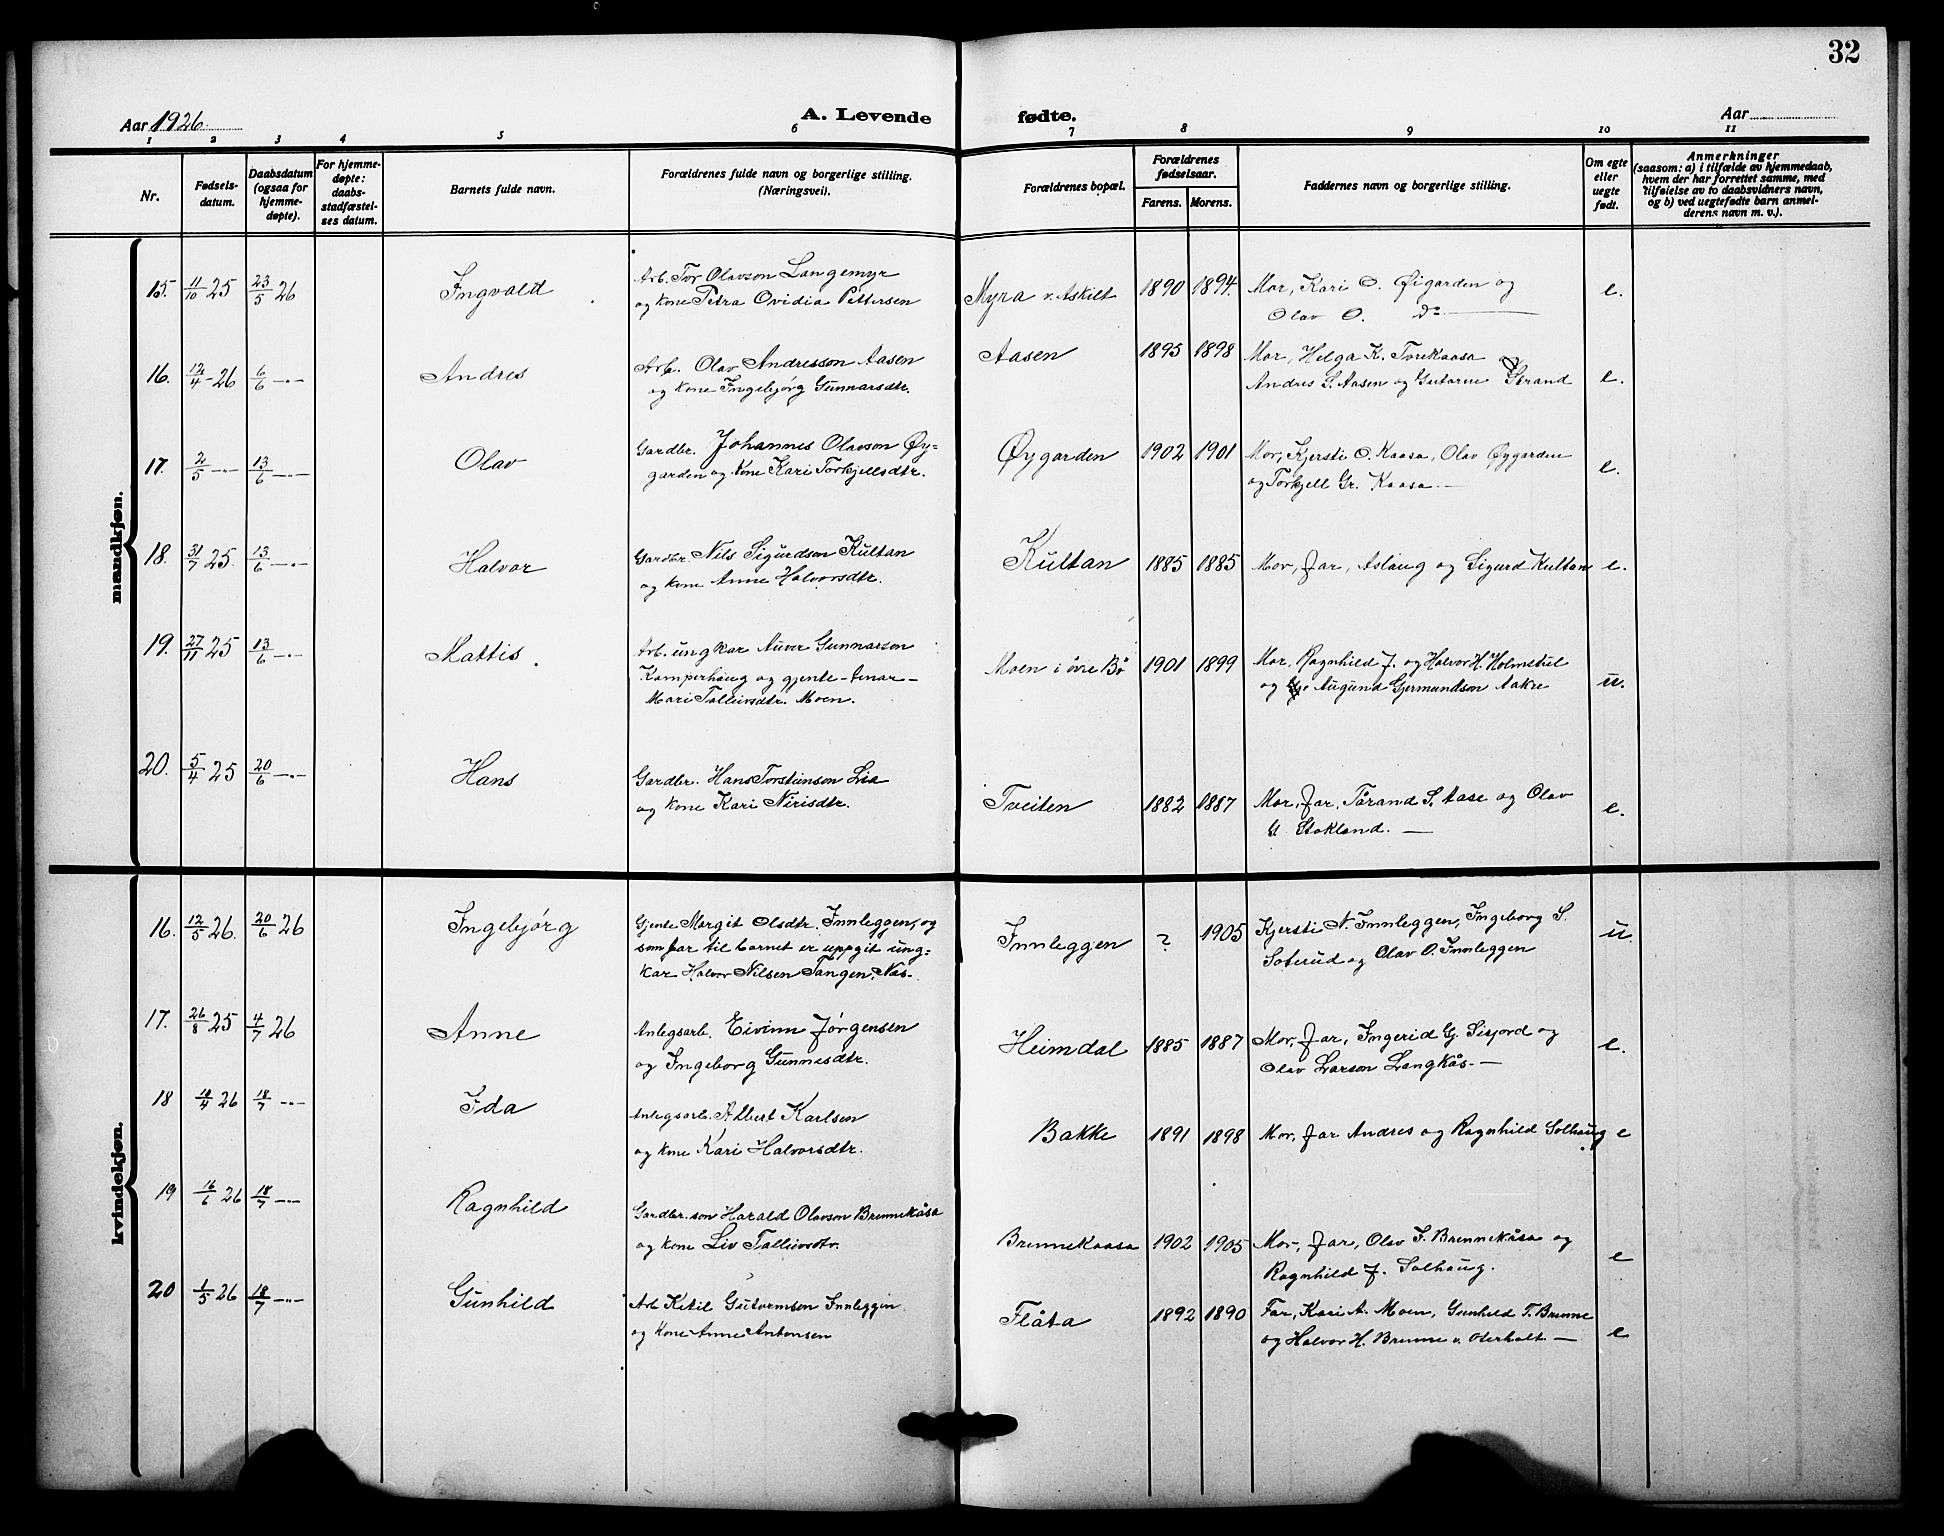 32
Aar 1926.
A. Levende
fødte.
Aar
1 2 3 4 5 6 7 8 9 10 11
Nr.
Fødsels-
datum.
Daabsdatum
(ogsaa for
hjemme-
døpte).
For hjemme-
døpte:
daabs-
stadfæstel-
ses datum.
Barnets fulde navn.
Forældrenes fulde navn og borgerlige stilling.
(Næringsvei).
Forældrenes bopæl.
Forældrenes
fødselsaar.
Farens. Morens.
Faddernes navn og borgerlige stilling.
Om egte
eller
uegte
født.
Anmerkninger
(saasom: a) i tilfælde av hjemmedaab,
hvem der har forrettet samme, med
tilføielse av to daabsvidners navn,
og b) ved uegtefødte barn anmel-
derens navn m. v.).
mandkjøn.
15. 11/10 25 23/5 26 Ingvald Arb. Tor Olavson Langemyr
og kone Petra Ovidia Pettersen
Myra v. Askilt 1890 1894. Mor, Kari O. Øigarden og
Olav O. do e.
16. 12/4 - 26 6/6 -"- Andres Arb. Olav Andresson Aasen
og kone Ingebjørg Gunnarsdtr.
Aasen 1895 1898 Mor, Helga K. Torekaasa
Andres S. Aasen og Gutorm Strand e.
17. 2/5 -"- 13/6 -"- Olav Gardbr. Johannes Olavson Øy=
garden og kone Kari Torkjellsdtr.
Øygarden 1902 1901 Mor, Kjersti O. Kaasa, Olav Øygarden
og Torkjell Gr. Kaasa. - e.
18. 31/7 25. 13/6 -"- Halvor Gardbr. Nils Sigurdson Kultan
og kone Anne Halvorsdtr.
Kultan 1885 1885 Mor, far, Aslaug og Sigurd Kultan e.
19. 27/11 25 13/6 -"- Mattis. Arb. ungkar Auver Gunnarson
Kamperhaug og gjente - tenar -
Mari Talleivsdtr. Moen.
Moen i øvre Bø 1901 1899 Mor, Ragnhild J. og Halvor H. Holmstul
og Augund Gjermundson Aakre u.
20. 5/4 25 20/6 -"- Hans Gardbr. Hans Torsteinson Lia
og kone Kari Nirisdtr.
Tveiten 1882 1887 Mor, far, Tårand S. Aase og Olav
Stokland. - e.
kvindekjøn.
16. 12/5 26. 20/6 26 Ingebjørg Gjente Margit Olsdtr. Innleggen, og
som far til barnet er uppgit ung=
kar Halvor Nilsen Tangen, Næs.
Innleggen ? 1905 Kjersti N. Innleggen, Ingeborg S.
Soterud og Olav O. Innleggen u.
17. 26/8 25 4/7 26 Anne Anlegsarb. Eivinn Jørgensen
og Ingeborg Gunnesdtr.
Heimdal 1885 1887 Mor, far, Ingerid G. Sisjord og
Olav Larson Langkås. - e.
18 18/4 26 18/7 -"- Ida Anlegsarb. Albert Karlsen
og kone Kari Halvorsdtr.
Bakke 1891 1898 Mor, far Andres og Ragnhild Solhaug e
19 16/6 26 18/7 -"- Ragnhild Gardbr. son Harald Olavson Brennekåsa
og kone Liv Talleivsdtr.
Brennekaasa 1902 1905 Mor, far, Olav I. Brennekåsa og
Ragnhild J. Solhaug. e
20 1/5 26 18/7 -"- Gunhild Arb Ketil Gutormson Innleggen
og kone Anne Antonsen
Flåta 1892 1890 Far, Kari A. Moen, Gunhild T. Brenne
og Halvor H. Brenne v. Oterholt. - e